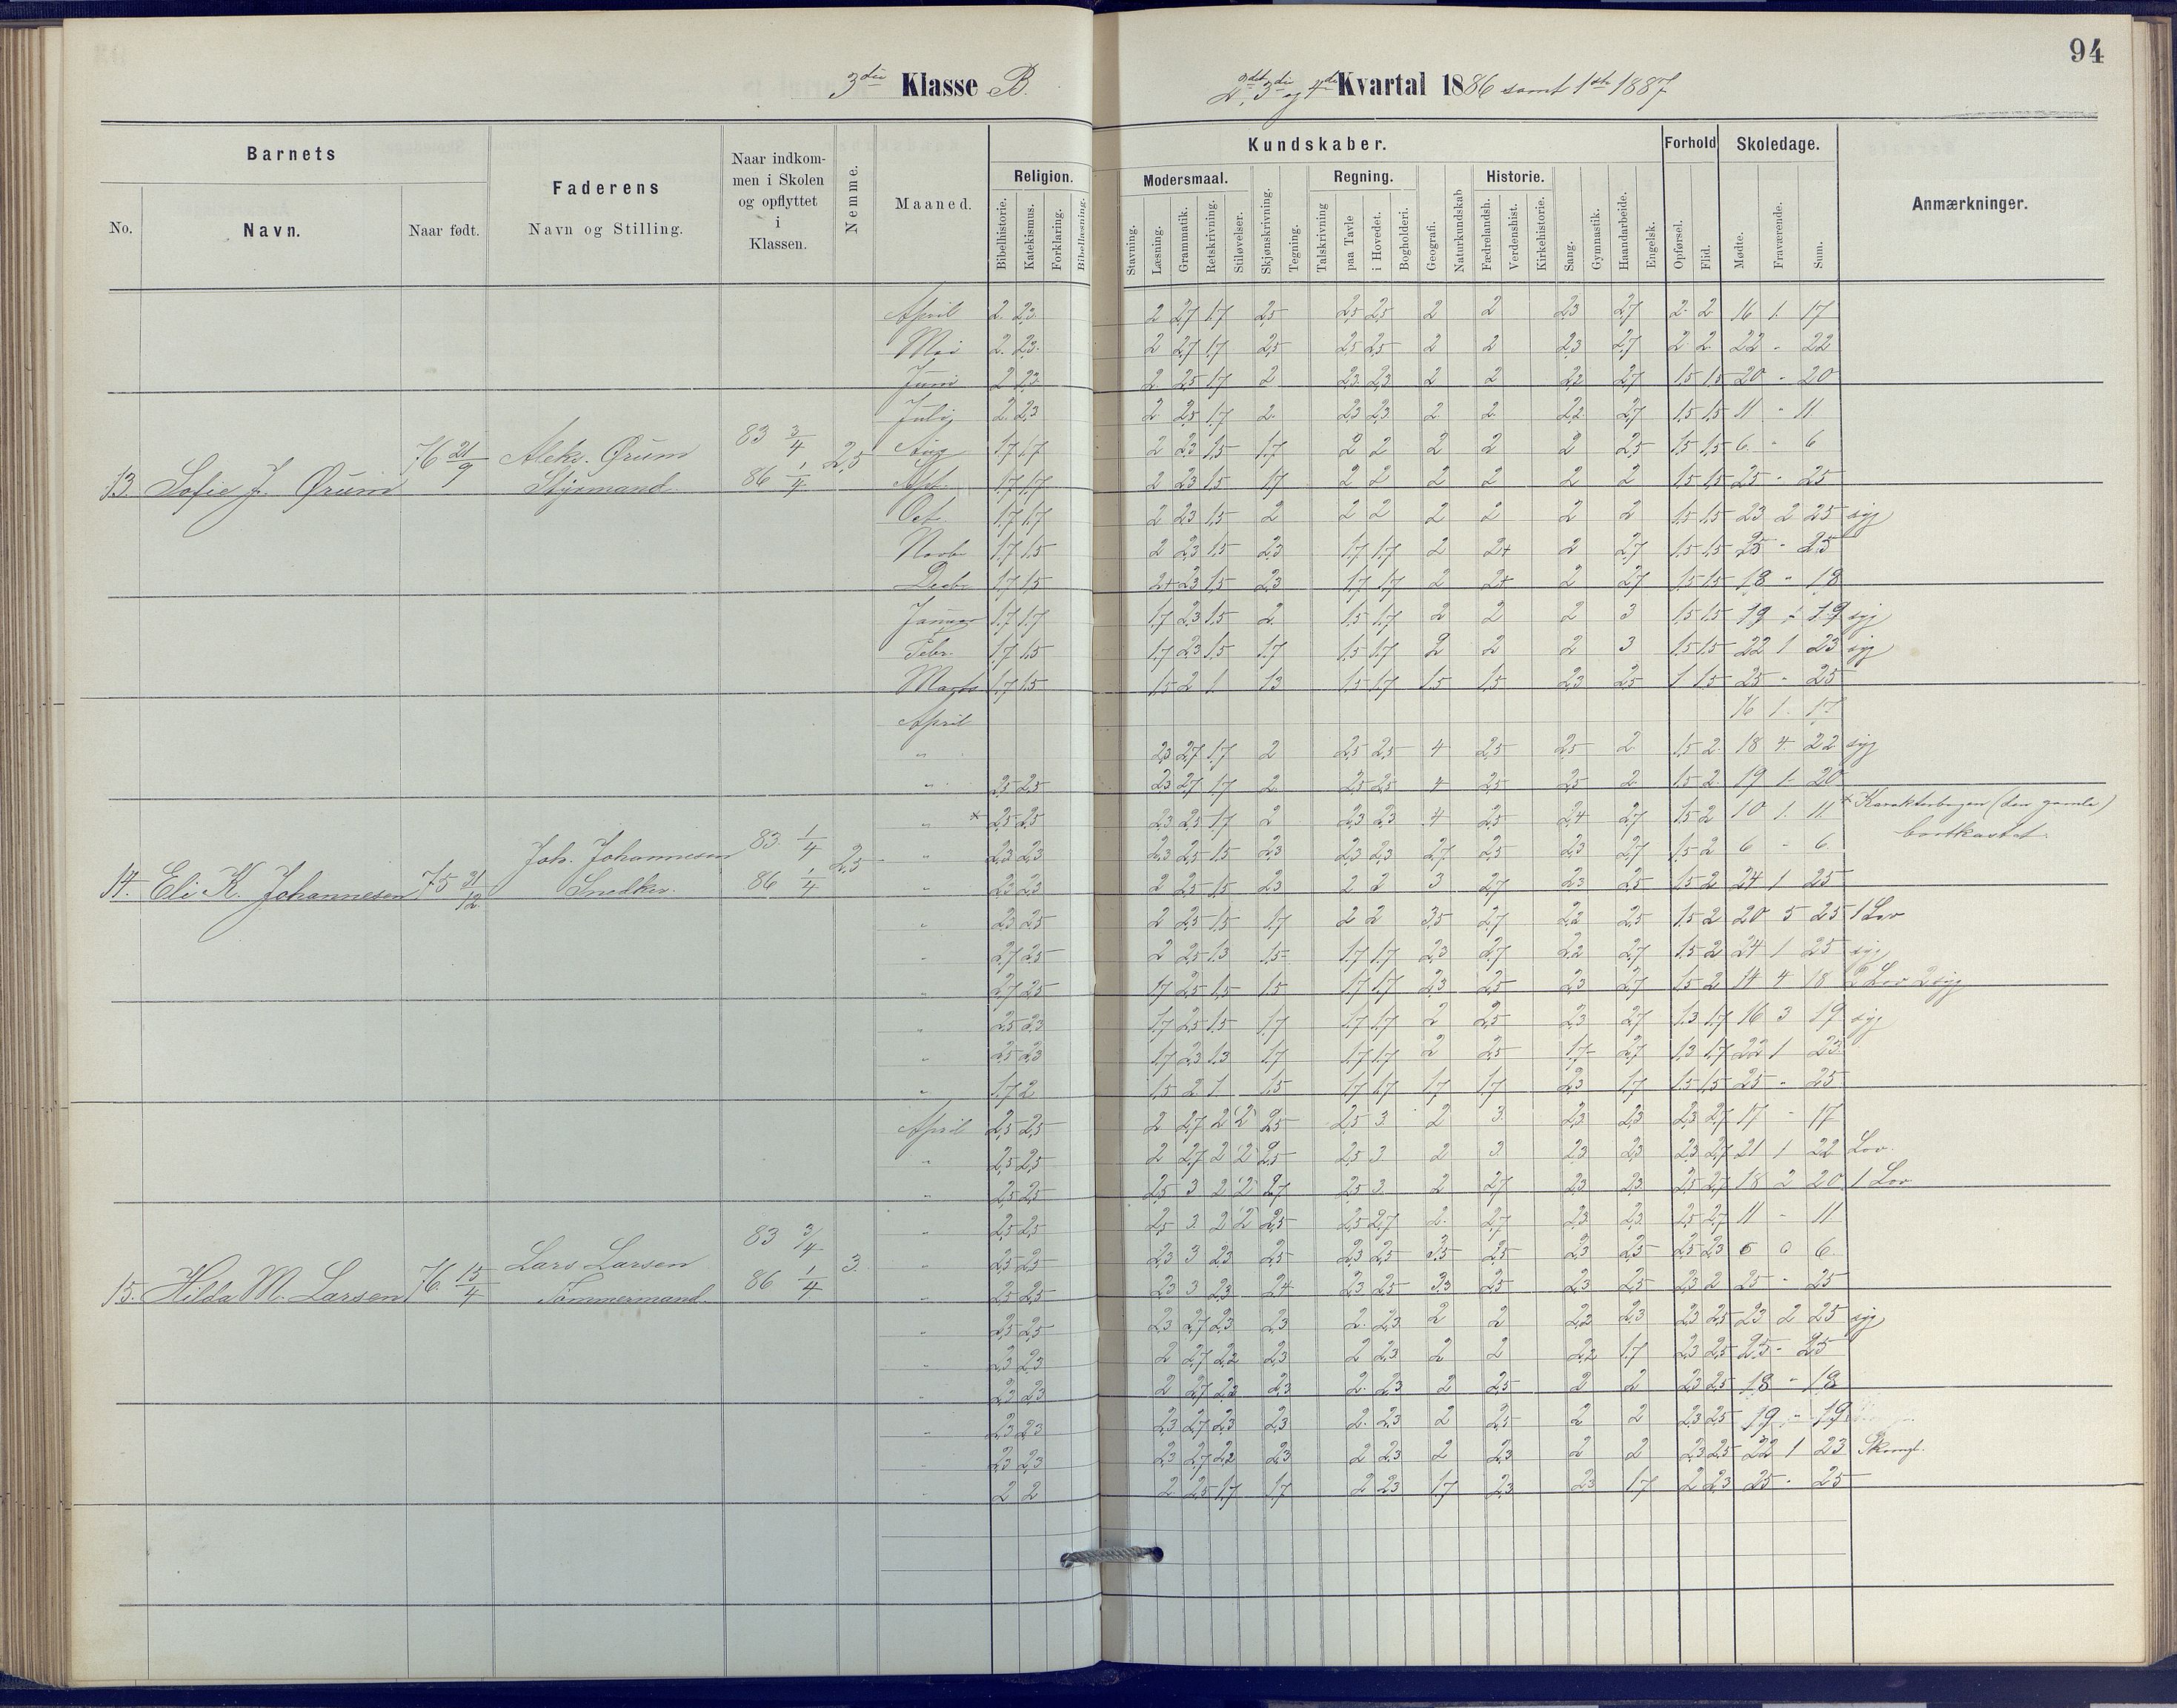 94
3die Klasse B.
2det, 3die og 4de Kvartal 1886 samt 1ste 1887
Barnets
No.
Navn.
Naar født.
Faderens
Navn og Stilling.
Naar indkom-
men i Skolen
og opflyttet
i
Klassen.
Nemme.
Maaned.
Kundskaber.
Religion.
Bibelhistorie.
Katekismus.
Forklaring.
Bibellæsning.
Modersmaal.
Stavning.
Læsning.
Grammatik.
Retskrivning.
Stiløvelser.
Skjønskrivning.
Tegning.
Regning.
Talskrivning
paa Tavle
i Hovedet.
Bogholderi.
Geografi.
Naturkundskab
Historie.
Fædrelandsh.
Verdenshist.
Kirkehistorie.
Sang.
Gymnastik.
Haandarbeide.
Engelsk.
Forhold
Opførsel.
Flid.
Skoledage.
Mødte.
Fraværende.
Sum.
Anmærkninger.
13. Sofie J. Ørum 76 21/9 Aleks. Ørum Styrmand 83 3/4 86 1/4 2,5
April 2 2,3 2 2,7 1,7 2,5 2,5 2,5 2 2 2,3 2,7 2 2 16 1 17
Mai 2 2,3 2 2,7 1,7 2,5 2,5 2,5 2 2 2,3 2,7 2 2 22 - 22
Juni 2 2,3 2 2,5 1,7 2 2,3 2,3 2 2 2,2 2,7 1,5 1,5 20 - 20
Juli 2 2,3 2 2,5 1,7 2 2,3 2,3 2 2 2,2 2,7 1,5 1,5 11 - 11
Aug 1,7 1,7 2 2,3 1,5 1,7 2 2 2 2 2 2,5 1,5 1,5 6 - 6
Sptr 1,7 1,7 2 2,3 1,5 1,7 2 2 2 2 2 2 1,5 1,5 25 - 25
Oct 1,7 1,7 2 2,3 1,5 2 2 2 2 2 2 2 1,5 1,5 23 2 25 syg
Novbr 1,7 1,5 2 2,3 1,5 2,3 1,7 1,7 2 2+ 2 2,7 1,5 1,5 25 - 25
Decbr 1,7 1,5 2+ 2,3 1,5 2,3 1,7 1,7 2 2+ 2 2,7 1,5 1,5 18 - 18
Januar 1,7 1,7 1,7 2,3 1,5 2 1,5 1,7 2 2 2 3 1,5 1,5 19 - 19 syg
Febr. 1,7 1,5 1,7 2,3 1,5 1,7 1,5 1,7 2 2 2 3 1,5 1,5 22 1 23 syg
Marts 1,7 1,5 1,5 2 1 1,3 1,5 1,7 1,5 1,5 2,3 2,5 1 1,5 25 - 25
14. Eli K. Johannesen 75 31/12 Joh. Johannesen Snedker. 83 1/4 86 1/4 2,5
April 16 1 17
" 2,3 2,7 1,7 2 2,5 2,5 4 2,5 2,5 2 1,5 2 18 4 22 syg
" 2,5 2,5 2,3 2,7 1,7 2 2,5 2,5 4 2,5 2,5 2 1,5 2 19 1 20
" * 2,5 2,5 2,3 2,5 1,7 2 2,3 2,3 4 2,5 2,4 2,7 1,5 2 10 1 11 * Karakterbogen (den gamle)
bortkastet.
" 2,3 2,3 2,3 2,5 1,5 2,3 2,3 2,3 2,7 2,5 2,3 2,7 1,5 2 6 - 6
" 2,3 2,3 2 2,5 1,5 2,3 2 2 3 2,7 2,3 2,5 1,5 2 24 1 25
" 2,3 2,5 2 2,5 1,5 1,7 2 2 3,5 2,7 2,2 2,5 1,5 2 20 5 25 1 Lov
" 2,7 2,5 2 2,5 1,3 1,5 1,7 1,7 2,3 2,7 2,2 2,7 1,5 2 24 1 25 syg
" 2,7 2,5 1,7 2,5 1,5 1,5 1,7 1,7 2,3 2,5 2,3 2,7 1,5 2 14 4 18 2 Lov 2 syg
" 2,5 2,3 1,7 2,5 1,5 1,7 1,7 1,7 2 2,5 2,3 2,7 1,3 1,7 16 3 19 syg
" 2,5 2,3 1,7 2,3 1,3 1,7 1,7 1,7 2 2,5 1,7 2,7 1,3 1,7 22 1 23
" 1,7 2 1,5 2 1 1,5 1,7 1,7 1,7 1,7 2,3 1,7 1,5 1,5 25 - 25
15. Hilda M. Larsen 76 15/4 Lars Larsen Tømmermand. 83 3/4 86 1/4 3
April 2,5 2,5 2 2,7 2 2 2,5 2,5 3 2 3 2,3 2,3 2,3 2,7 17 - 17
" 2,5 2,5 2 2,7 2 2 2,5 2,5 3 2 3 2,3 2,3 2,3 2,7 21 1 22 Lov.
" 2,5 2,5 2,5 3 2 2 2,7 2,5 3 2 2,7 2,3 2,3 2,5 2,7 18 2 20 1 Lov
" 2,5 2,5 2,5 3 2 2 2,5 2,5 2,7 2 2,7 2,3 2,3 2,5 2,7 11 - 11
" 2,5 2,5 2,3 3 2,3 2,5 2,3 2,5 3,5 2,5 2,3 2,5 2,5 2,3 6 0 6
" 2,5 2,5 2,3 3 2,3 2,4 2,3 2,5 3,3 2,5 2,3 2,5 2,3 2 25 - 25
" 2,5 2,5 2,3 2,7 2,3 2,3 2 2,3 2 2 2,2 2,3 2,3 2,5 23 2 25 syg
" 2,3 2,3 2 2,7 2,2 2,3 2 2,3 2 2 2,2 1,7 2,3 2,5 25 - 25
" 2,3 2,3 2 2,7 2,2 2,3 2 2,3 2 2,5 2 2 2,3 2,5 18 - 18
" 2,3 2,3 2,3 2,7 2,3 2,3 2 2,3 2 2,5 2 2 2,3 2,5 19 - 19
" 2,3 2,3 2,3 2,7 2,2 2,3 2 2,3 2 2,3 2 2 2,3 2,5 22 1 23
" 2 2 2 2,5 1,7 1,7 2 2,3 1,7 2,3 2,3 1,7 2 2,3 25 - 25